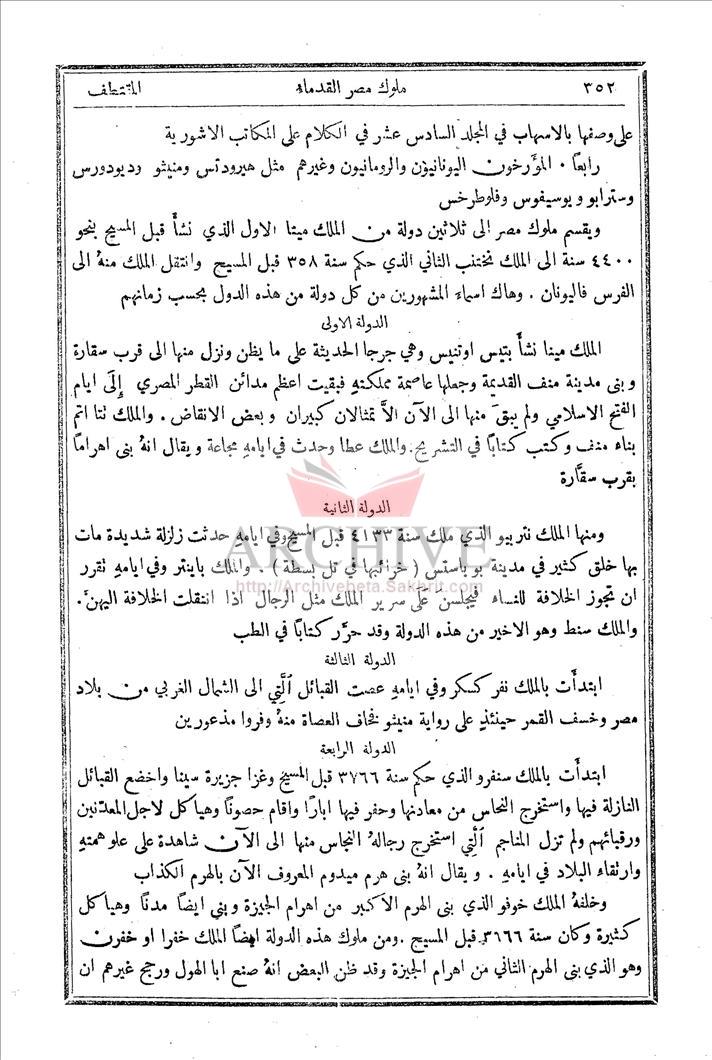 ٣٥٢ ملوك مصر القدماء المقتطف
على وصفها بالاسهاب في المجلد السادس عشر في الكلام على المكاتب الاشورية
رابعاً ٠ المؤرخون اليونانيون والرومانيون وغيرهم مثل هيرودتس ومنيثو وديودورس
وسترابو ويوسيفوس وفلوطرخس
ويقسم ملوك مصر الى ثلاثين دولة من الملك مينا الاول الذي نشأ قبل المسيح بنحو
٤٤٠٠ سنة الى الملك نختنب الثاني الذي حكم سنة ٣٥٨ قبل المسيح وانتقل الملك منهُ الى
الفرس فاليونان . وهاك اسماء المشهورين من كل دولة من هذه الدول بحسب زمانهم
الدولة الاولى
الملك مينا نشأ بتيس اوتنيس وهي جرجا الحديثة على ما يظن ونزل منها الى قرب سقارة
وبنى مدينة منف القديمة وجعلها عاصمة مملكتهِ فبقيت اعظم مدائن القطر المصري إِلَى ايام
الفتح الاسلامي ولم يبقَ منها الى الآن الاَّ تمثالان كبيران وبعض الانقاض . والملك نتا اتم
بناء منف وكتب كتاباً في التشريح . والملك عطا وحدث في ايامهِ مجاعة ويقال انهُ بنى اهراماً
بقرب سقَّارة
الدولة الثانية
ومنها الملك نتربيو الذي ملك سنة ٤١٣٣ قبل المسيح وفي ايامهِ حدثت زلزلة شديدة مات
بها خلق كثير في مدينة بوباستس ( خرائبها في تل بسطة ) . والملك باينتر وفي ايامهِ تقرر
ان تجوز الخلافة للنساء فيجلسن عَلَى سرير الملك مثل الرجال اذا انتقلت الخلافة اليهنَّ .
والملك سنط وهو الاخير من هذه الدولة وقد حرَّر كتاباً في الطب
الدولة الثالثة
ابتدأَت بالملك نفر كسكر وفي ايامهِ عصت القبائل اَلَّتِي الى الشمال الغربي من بلاد
مصر وخسف القمر حينئذٍ على رواية منيثو فخاف العصاة منهُ وفروا مذعورين
الدولة الرابعة
ابتدأَت بالملك سنفرو الذي حكم سنة ٣٧٦٦ قبل المسيح وغزا جزيرة سينا واخضع القبائل
النازلة فيها واستخرج النحاس من معادنها وحفر فيها ابارًا واقام حصوناً وهياكل لاجل المعدّنين
ورقبائهم ولم تزل المناجم اَلَّتِي استخرج رجالهُ النحاس منها الى الآن شاهدة على علو همتهِ
وارتقاء البلاد في ايامهِ . ويقال انهُ بنى هرم ميدوم المعروف الآن بالهرم الكذاب
وخلفهُ الملك خوفو الذي بنى الهرم الاكبر من اهرام الجيزة وبني ايضاً مدناً وهياكل
كثيرة وكان سنة ٣٦٦٦ قبل المسيح . ومن ملوك هذه الدولة ايضاً الملك خفرا او خفرن
وهو الذي بنى الهرم الثاني من اهرام الجيزة وقد ظن البعض انهُ صنع ابا الهول ورجح غيرهم ان
ARCHIVE
http://Archivebeta.Sakhrit.com